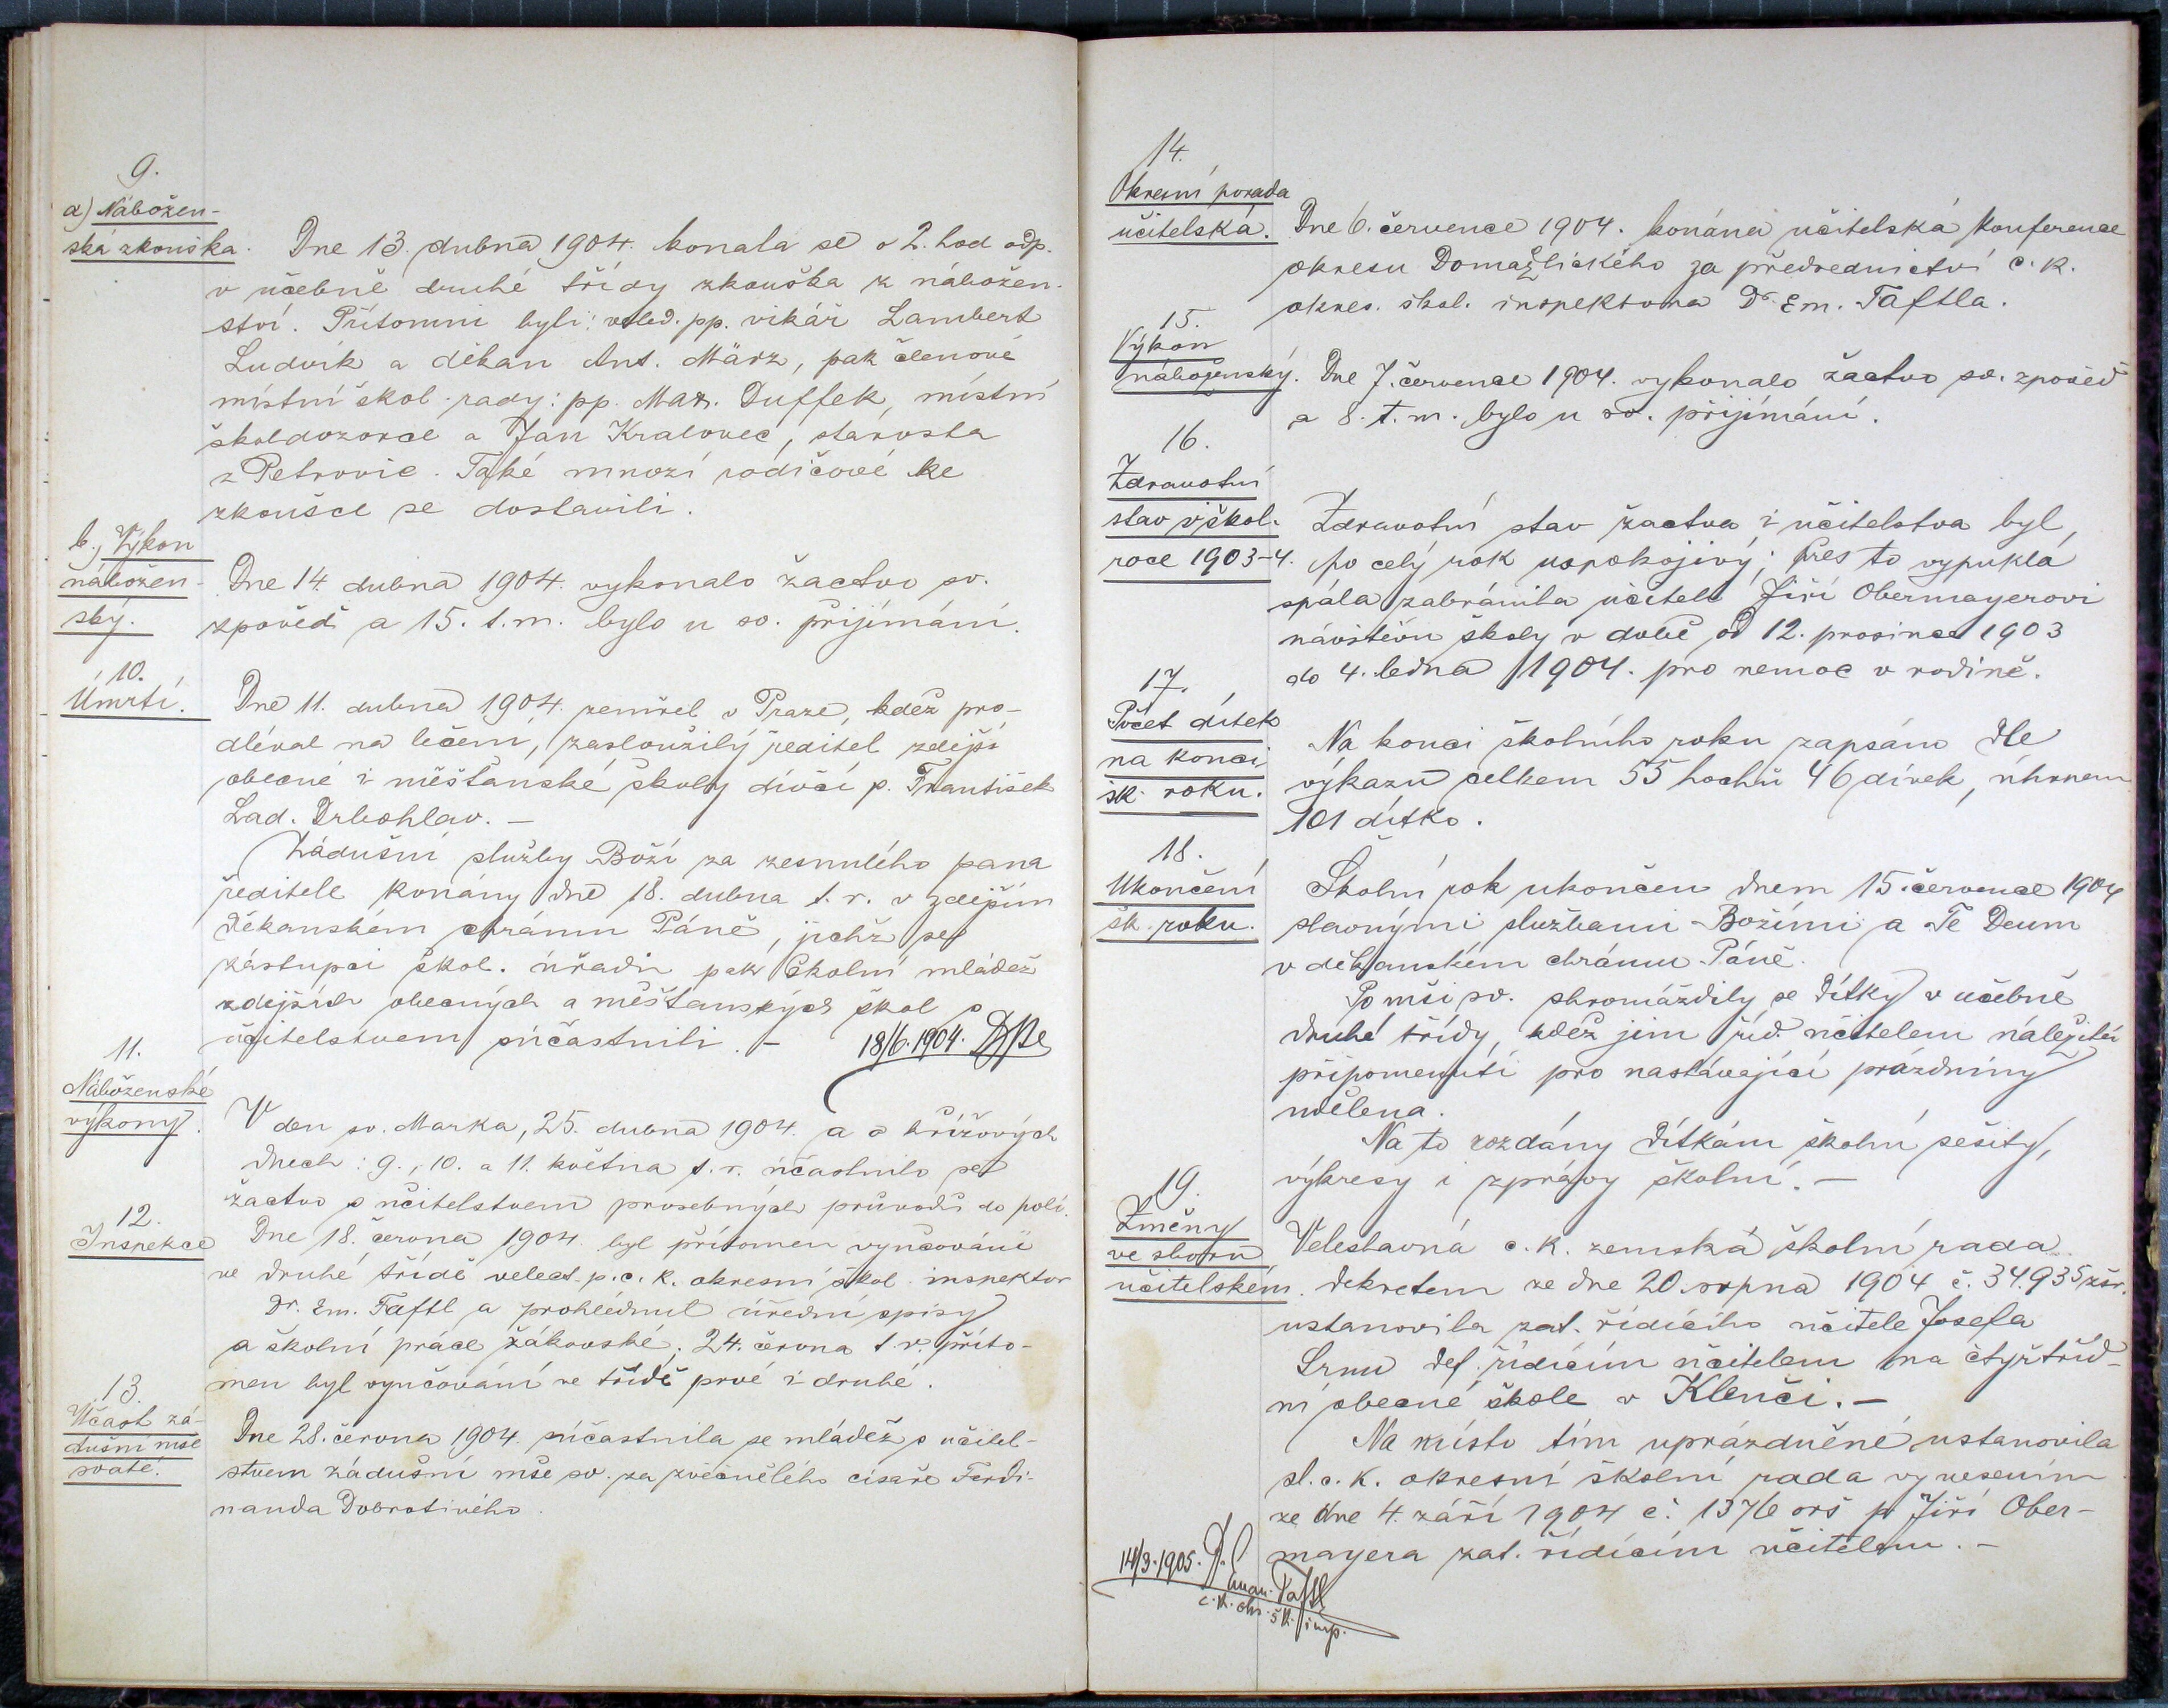 9.
a) Nábožen-
ská zkouška.
Dne 13. dubna 1904. konala se o 2. hod odp.
v učebně druhé třídy zkouška z nábožen-
ství. Přítomni byli: vsled. pp. vikář Lambert
Ludvík a děkan Ant. März, pak členové
místní škol. rady: pp. Max. Duffek, místní
školdozorce a Jan Kralovec, starosta
z Petrovic. Také mnozí rodičové ke
zkoušce se dostavili.
b., Výkon
nábožen-
ský.
Dne 14. dubna 1904. vykonalo žactvo sv.
zpověď a 15. t. m. bylo u sv. přijímání.
10.
Úmrtí.
Dne 11. dubna 1904. zemřel v Praze, kdež pro-
dléval na léčení, zasloužilý ředitel zdejší
obecné i měšťanské školy dívčí p. František
Lad. Drbohlav. —
Zádušní služby Boží za zesnulého pana
ředitele konány dne 18. dubna t. r. v zdejším
děkanském chrámu Páně, jichž se
zástupci škol. úřadův pak školní mládež
zdejších obecných a měšťanských škol s
učitelstvem súčastnili. — 18/6. 1904.
11.
Náboženské
výkony.
V den sv. Marka, 25. dubna 1904. a o křížových
dnech: 9., 10. a 11. května t. r. účastnilo se
žactvo s učitelstvem prosebných průvodů do polí.
12.
Inspekce
Dne 18. června 1904. byl přítomen vyučování
ve druhé třídě velect. p. c. k. okresní škol. inspektor
Dr. Em. Taftl a prohlédnul úřední spisy
a školní práce žákovské; 24. června t. r. příto-
men byl vyučování ve třídě prvé i druhé.
13.
Účast zá-
dušní mše
svaté.
Dne 28. června 1904. súčastnila se mládež s učitel-
stvem zádušní mše sv. za zvěčnělého císaře Ferdi-
nanda Dobrotivého.
14.
Okresní porada
učitelská.
Dne 6. července 1904. konána učitelská konference
okresu Domažlického za předsednictví c. k.
okres. škol. inspektora Dr. Em. Taftla.
15.
Výkon
náboženský.
Dne 7. července 1904. vykonalo žactvo sv. zpověď
a 8. t. m. bylo u sv. přijímání.
16.
Zdravotní
stav v škol.
roce 1903-4.
Zdravotní stav žactva i učitelstva byl
po celý rok uspokojivý; přes to vypuklá
spála zabránila učiteli Jiří Obermayerovi
návštěvu školy v době od 12. prosince 1903
do 4. ledna 1904. pro nemoc v rodině.
17.
Počet dítek
na konci
šk. roku.
Na konci školního roku zapsáno dle
výkazu celkem 55 hochů 46 dívek, úhrnem
101 dítko.
18.
Ukončení
šk. roku.
Školní rok ukončen dnem 15. července 1904
slavnými službami Božími a Te Deum
v děkanském chrámu Páně.
Po mši sv. shromáždily se dítky v učebně
druhé třídy, kdež jim říd. učitelem náležitá
připomenutí pro nastávající prázdniny
udělena.
Na to rozdány dítkám školní sešity,
výkresy i zprávy školní. —
19.
Změny
ve sboru
učitelském.
Veleslavná c. k. zemská školní rada
dekretem ze dne 20. srpna 1904 č. 34.935 zšr.
ustanovila zat. řídícího učitele Josefa
Srnu def. řídícím učitelem na čtyřtříd-
ní obecné škole v Klenči. —
Na místo tím uprázdněné ustanovila
sl. c. k. okresní školní rada vynesením
ze dne 4. září 1904 č. 1376 orš p. Jiří Ober-
mayera zat. řídícím učitelem. —
14/3. 1905. Dr.
Eman. Taftl
c. k. okr. šk. insp.